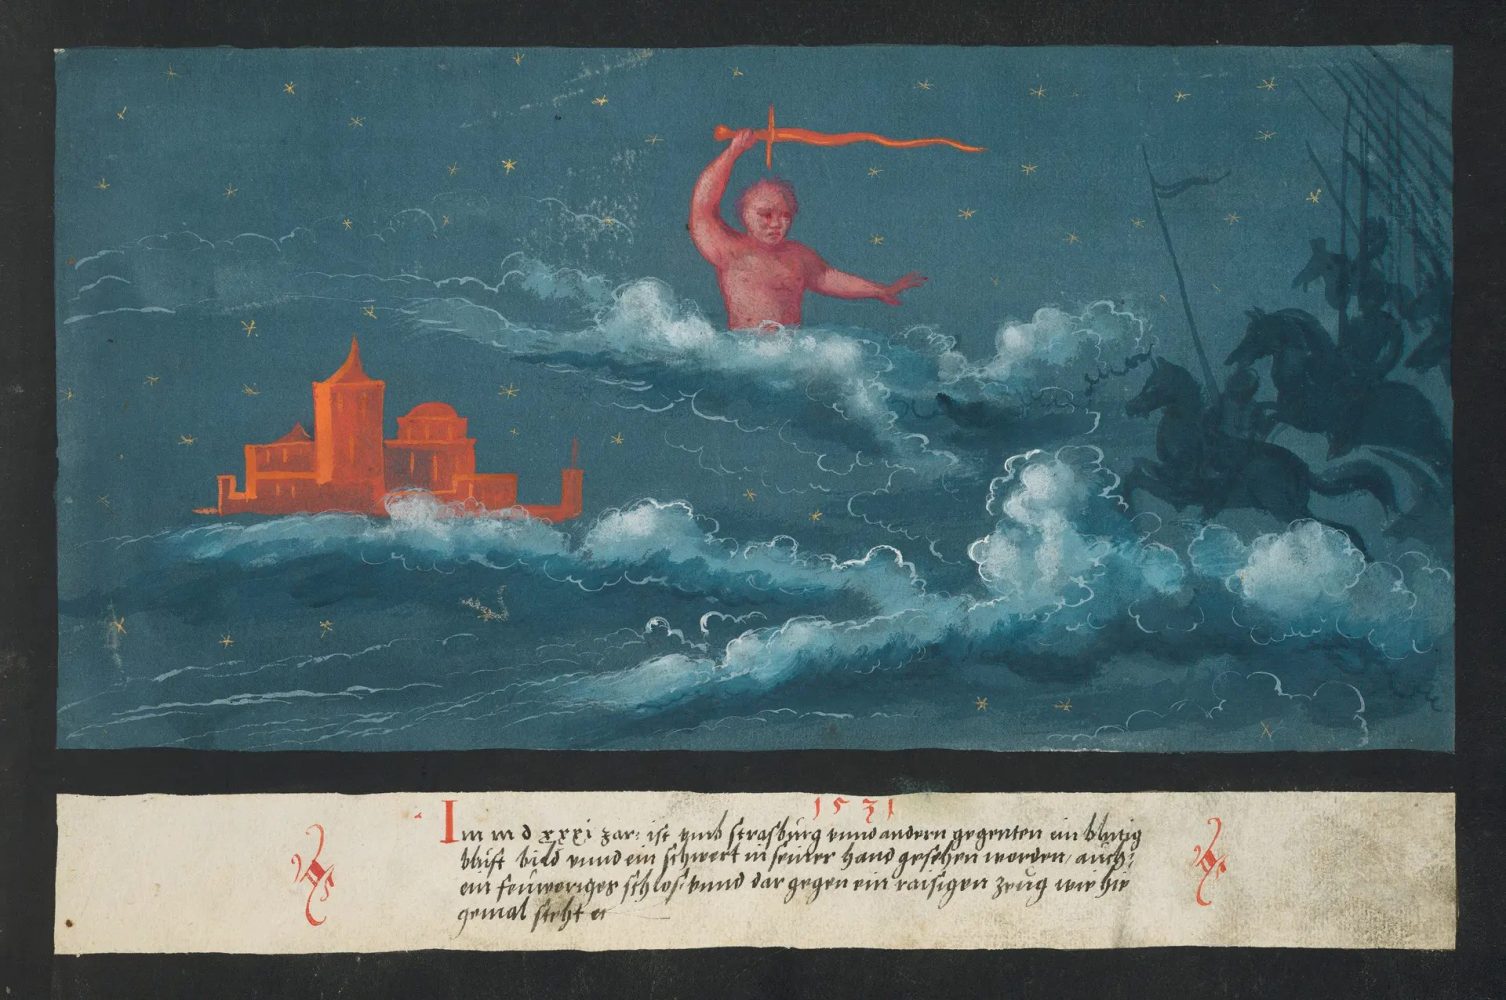 1531
Im m d xxxi jar: ist vmb strasburg vnnd andern gegenten ein blutig
brust bild vnnd ein schwert in seiner hand gesehen worden, auch:
ein feuweriges schlos: vnnd dar gegen ein raisigen zeug wie hie
gemal steht